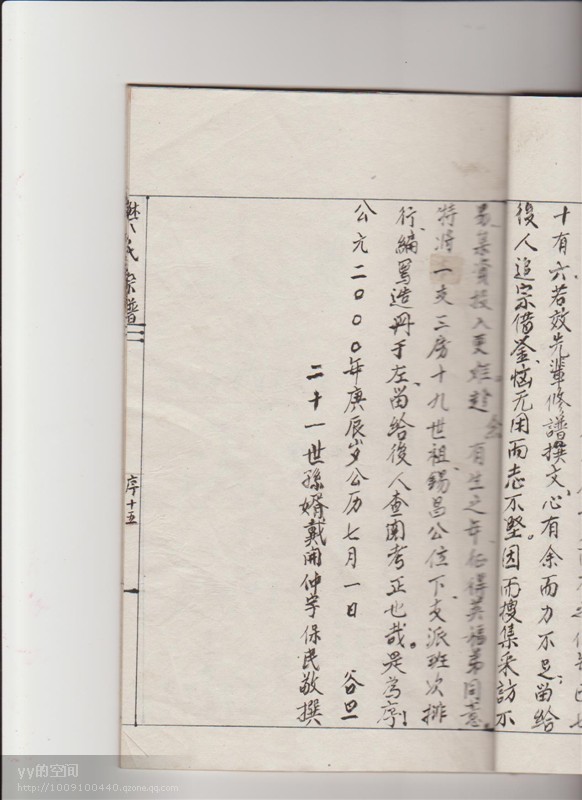 十有六,若效先輩修譜撰文,心有余而力不足,留给
後人追宗借鉴,恼无困而志不堅。因而搜集采訪不
集資投入更 趁 有生之年征得英福弟同意
特將一支三房十九世祖錫昌公位下,支派班次排
行,編寫造册于左,留给後人查閱考正也哉。是為序!
公元二000年庚辰岁公历七月一日 谷旦
二十一世孫婿戴開仲字保民敬撰
氏家譜
序十五
yy的空间
http://1009100440.qzone.qq.com